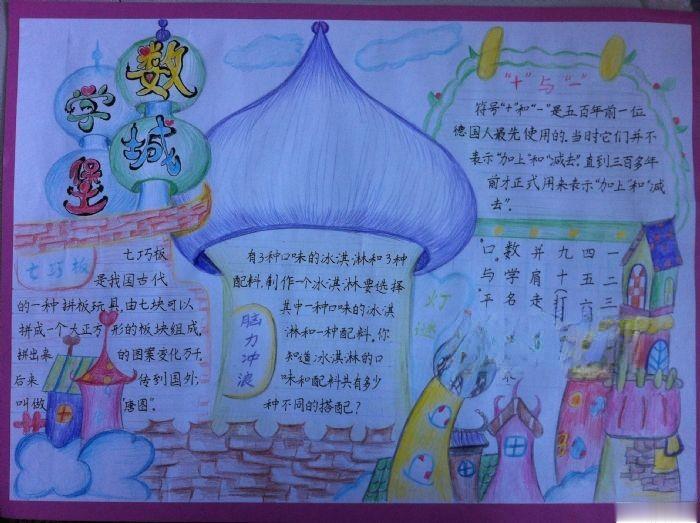 数学城堡
"+"与"-"
符号"+"和"-"是五百年前一位
德国人最先使用的。当时它们并不
表示"加上"和"减去"。直到三百多年
前才正式用来表示"加上"和"减
去"。
七巧板
七巧板
是我国古代
的一种拼板玩具,由七块可以
拼成一个大正方形的板块组成。
拼出来的图案变化万千,
后来传到国外
叫做"唐图"。
脑力冲浪
有3种口味的冰淇淋和3种
配料,制作一个冰淇淋要选择
其中一种口味的冰淇
淋和一种配料。你
知道冰淇淋的口
味和配料共有多少
种不同的搭配?
灯谜
一二三
四五六
九十(打
并肩走
数学名
口。与平